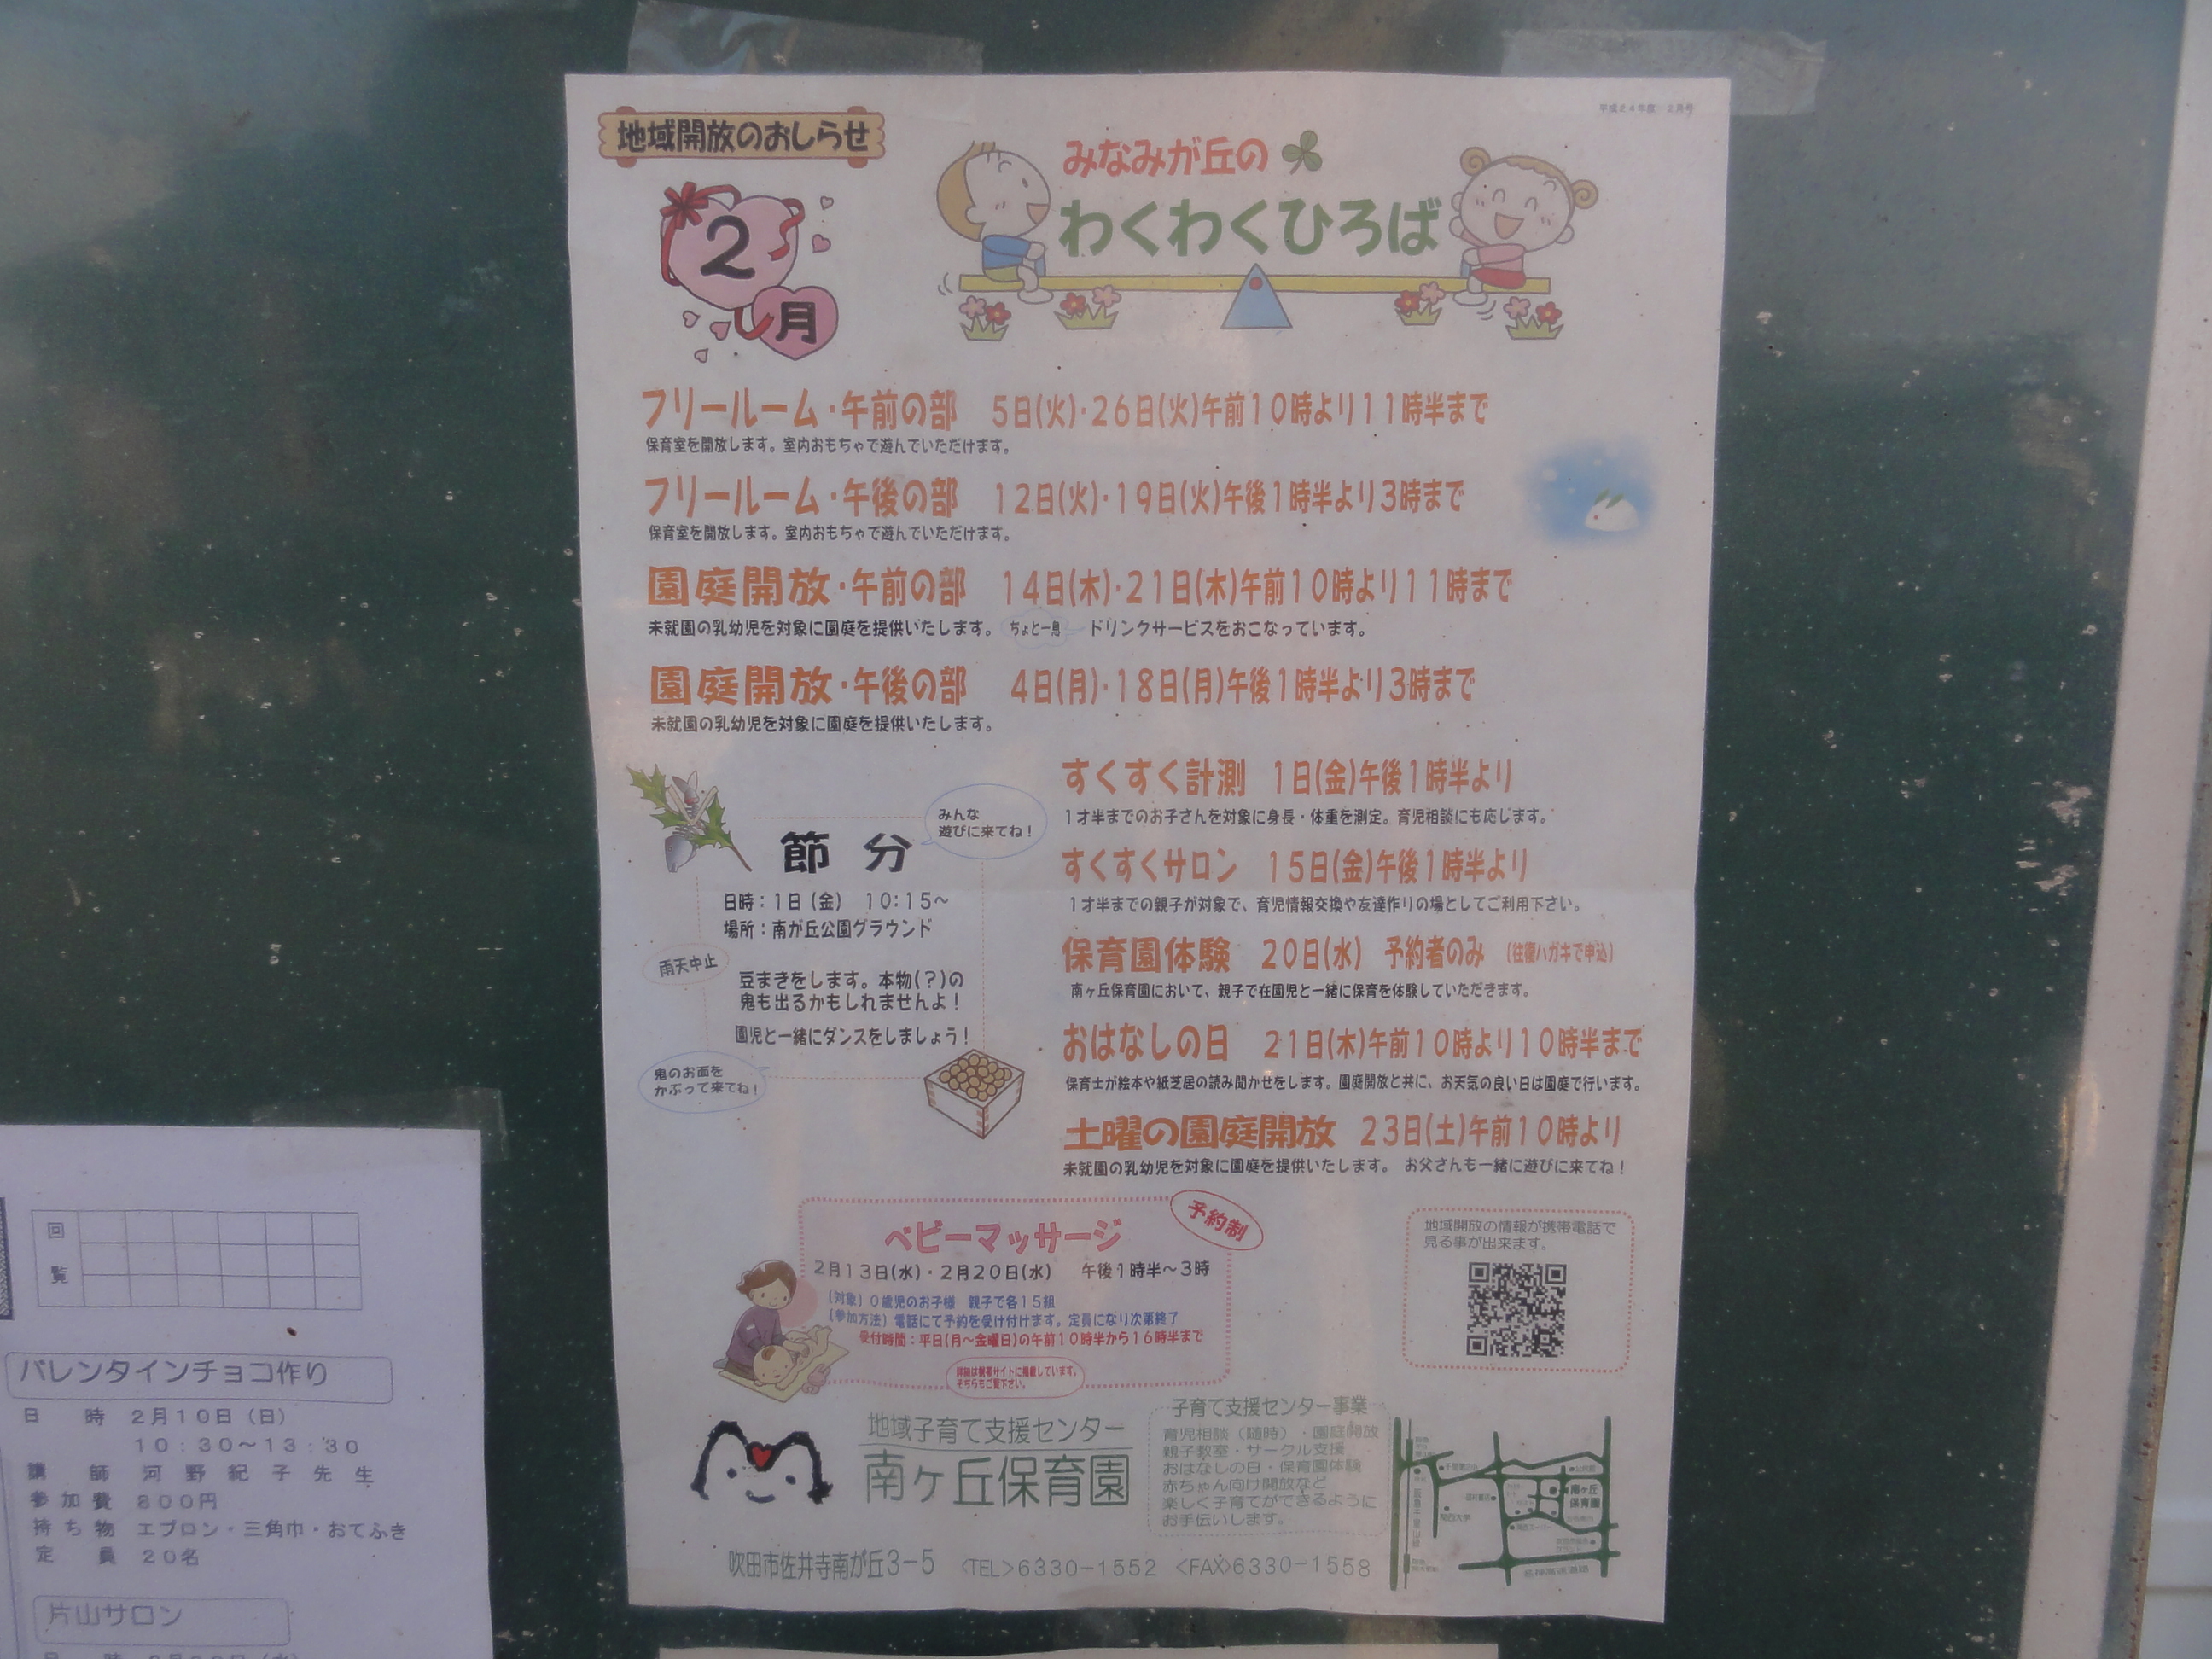 平成24年度 2月号
地域開放のおしらせ
2
月
みなみが丘の
わくわくひろば
フリールーム・午前の部 5日(火)・26日(火)午前10時より11時半まで
保育室を開放します。室内おもちゃで遊んでいただけます。
フリールーム・午後の部 12日(火)・19日(火)午後1時半より3時まで
保育室を開放します。室内おもちゃで遊んでいただけます。
園庭開放・午前の部 14日(木)・21日(木)午前10時より11時まで
未就園の乳幼児を対象に園庭を提供いたします。 ちょと一息 ドリンクサービスをおこなっています。
園庭開放・午後の部 4日(月)・18日(月)午後1時半より3時まで
未就園の乳幼児を対象に園庭を提供いたします。
みんな
遊びに来てね!
節 分
日時:1日(金) 10:15~
場所:南が丘公園グラウンド
雨天中止
豆まきをします。本物(?)の
鬼も出るかもしれませんよ!
園児と一緒にダンスをしましょう!
鬼のお面を
かぶって来てね!
すくすく計測 1日(金)午後1時半より
1才半までのお子さんを対象に身長・体重を測定。育児相談にも応じます。
すくすくサロン 15日(金)午後1時半より
1才半までの親子が対象で、育児情報交換や友達作りの場としてご利用下さい。
保育園体験 20日(水) 予約者のみ (往復ハガキで申込)
南ヶ丘保育園において、親子で在園児と一緒に保育を体験していただきます。
おはなしの日 21日(木)午前10時より10時半まで
保育士が絵本や紙芝居の読み聞かせをします。園庭開放と共に、お天気の良い日は園庭で行います。
土曜の園庭開放 23日(土)午前10時より
未就園の乳幼児を対象に園庭を提供いたします。 お父さんも一緒に遊びに来てね!
予約制
ベビーマッサージ
2月13日(水)・2月20日(水) 午後1時半~3時
(対象)0歳児のお子様 親子で各15組
(参加方法)電話にて予約を受け付けます。定員になり次第終了
受付時間:平日(月~金曜日)の午前10時半から16時半まで
詳細は携帯サイトに掲載しています。
そちらもご覧下さい。
地域開放の情報が携帯電話で
見る事が出来ます。
地域子育て支援センター
南ヶ丘保育園
子育て支援センター事業
育児相談(随時)・園庭開放
親子教室・サークル支援
おはなしの日・保育園体験
赤ちゃん向け開放など
楽しく子育てができるように
お手伝いします。
南ヶ丘
保育園
関西大学
名神高速道路
吹田市佐井寺南が丘3-5 <TEL>6330-1552 <FAX>6330-1558
回
覧
バレンタインチョコ作り
日 時 2月10日(日)
10:30~13:30
講 師 河野紀子先生
参加費 800円
持ち物 エプロン・三角巾・おてふき
定 員 20名
片山サロン